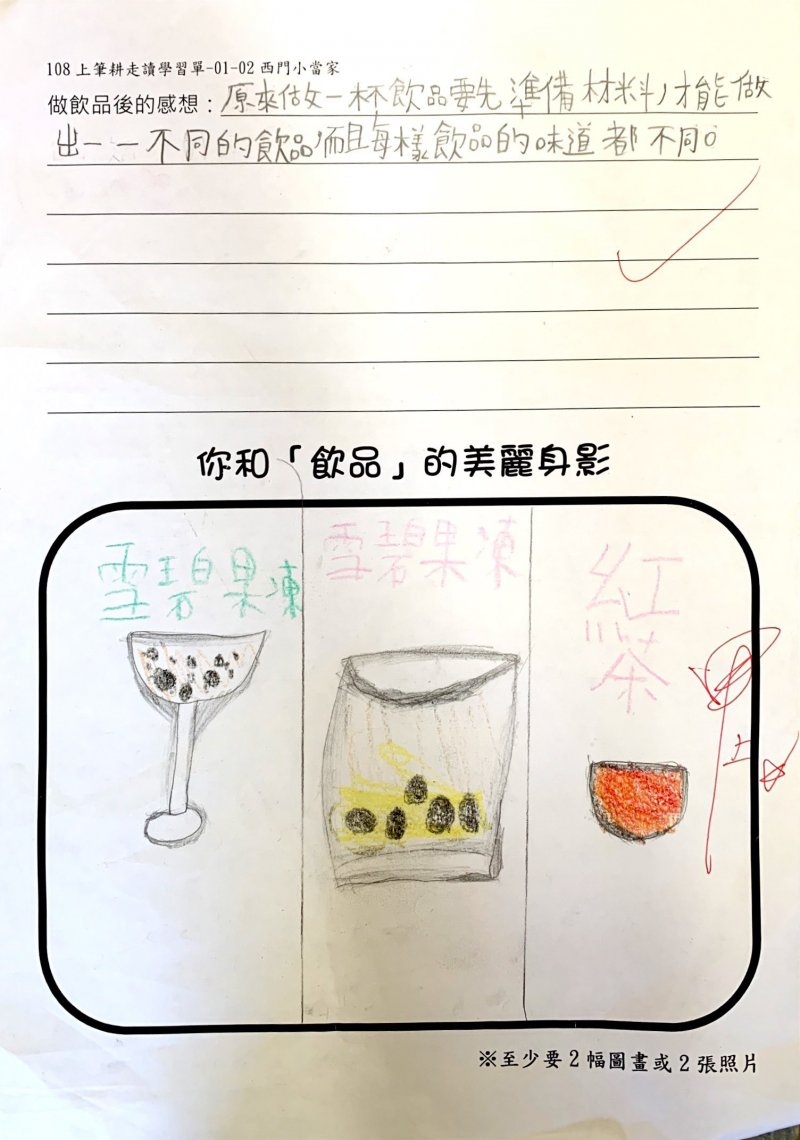 108上筆耕走讀學習單-01-02西門小當家
做飲品後的感想：原來做一杯飲品要先準備材料，才能做
出一一不同的飲品，而且每樣飲品的味道都不同。
你和「飲品」的美麗身影
雪碧果凍
雪碧果凍
紅茶
※至少要2幅圖畫或2張照片